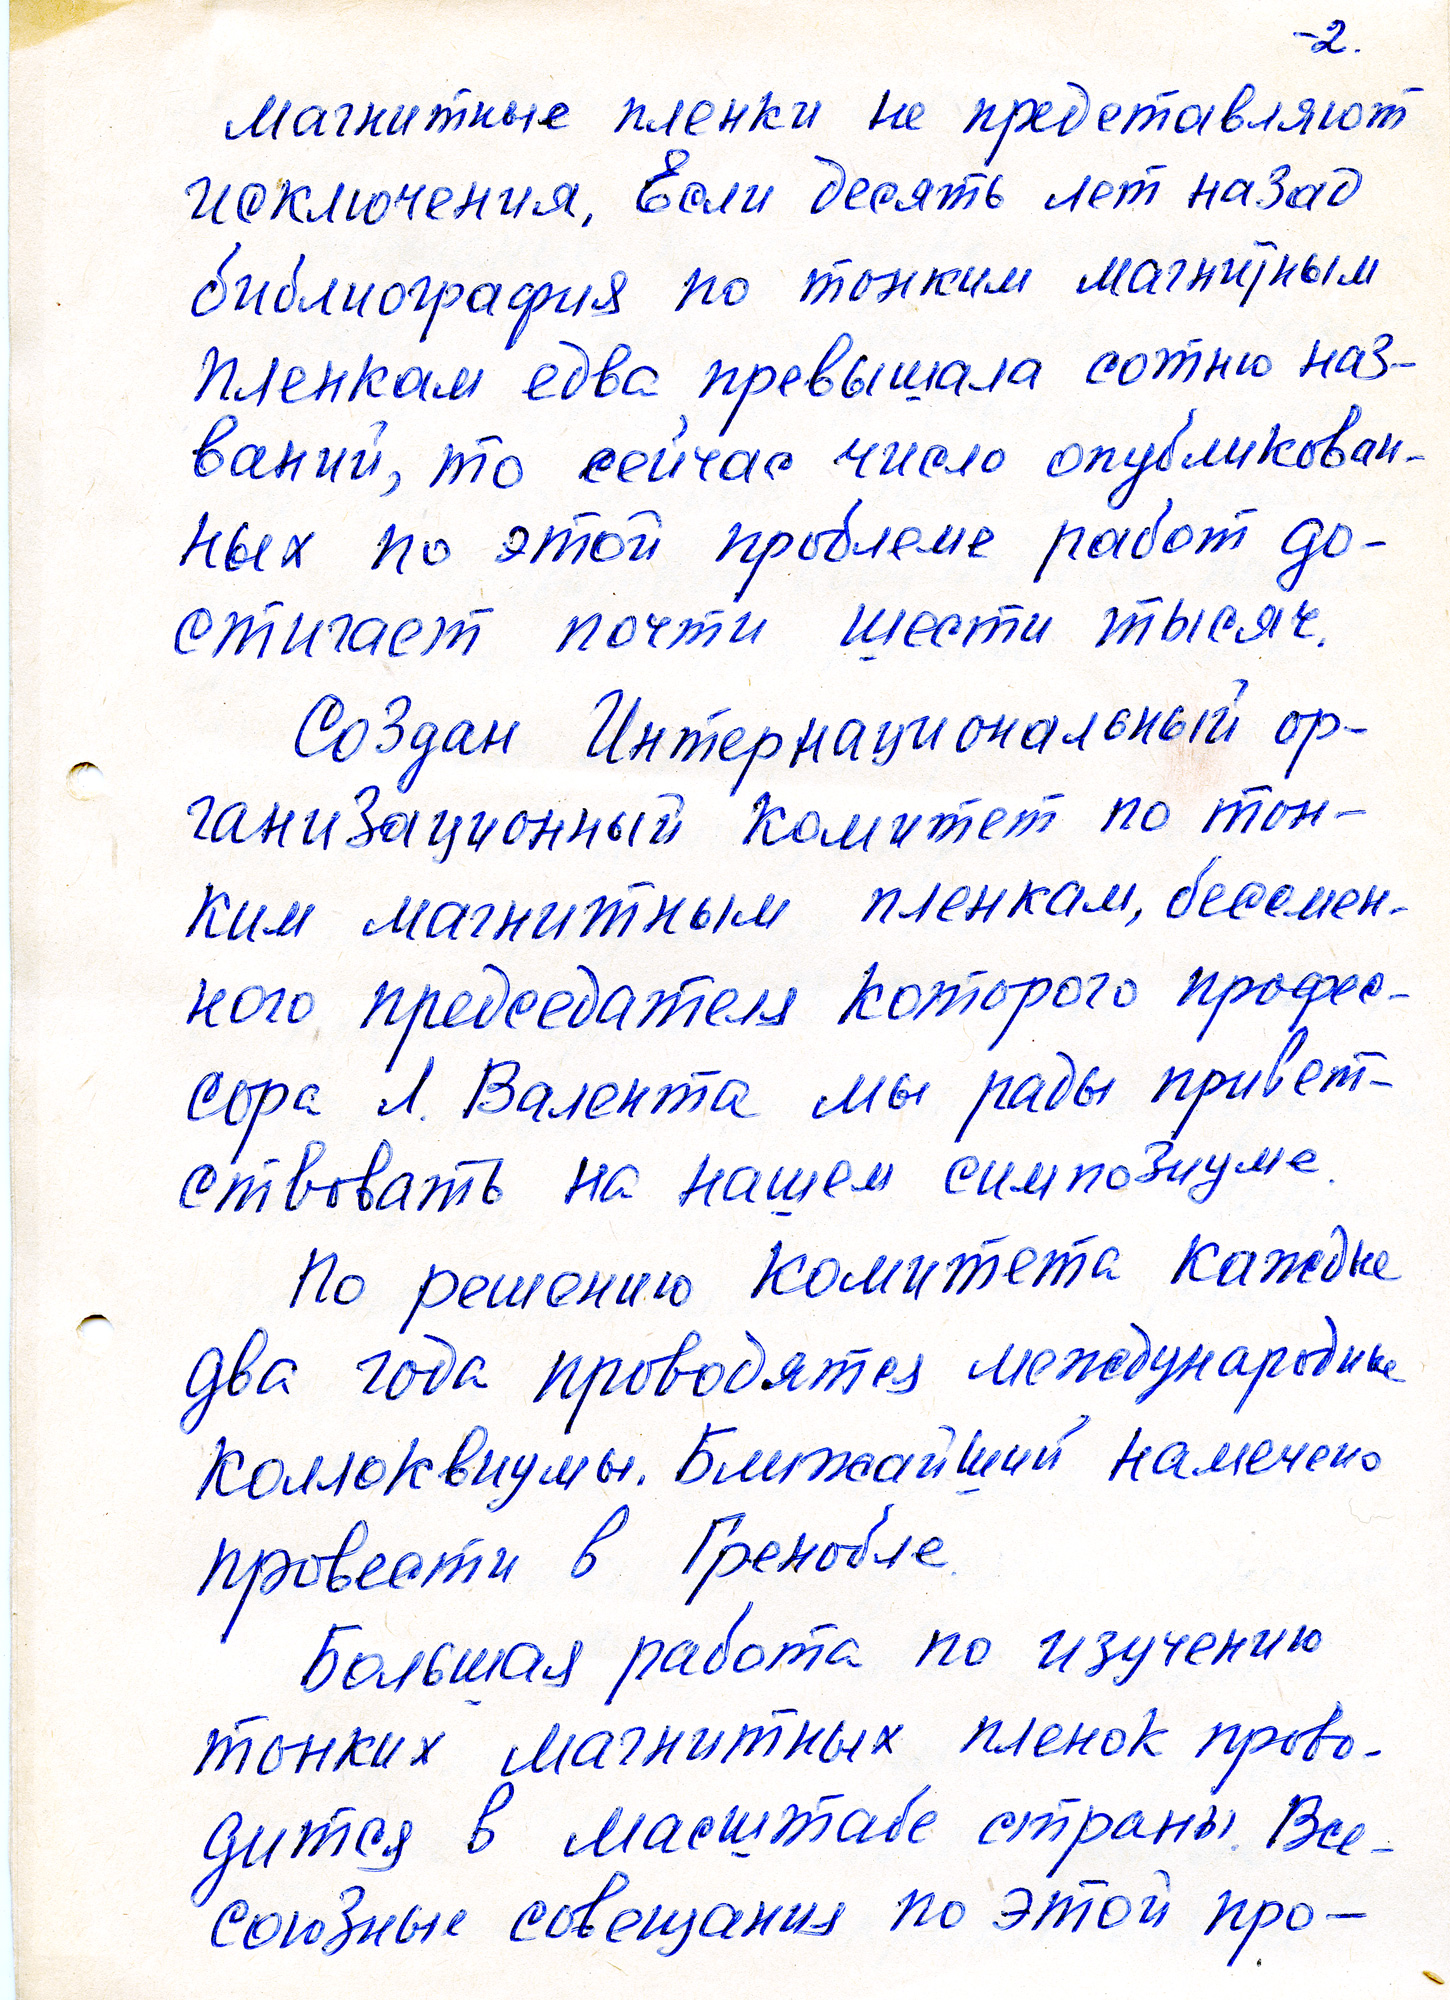 -2.
магнитные пленки не представляют
исключения, Если десять лет назад
библиография по тонким магнитным
пленкам едва превышала сотню наз-
ваний, то сейчас число опубликован-
ных по этой проблеме работ до-
стигает почти шести тысяч.
Создан Интернациональный ор-
ганизационный комитет по тон-
ким магнитным пленкам, бессмен-
ного председателя которого профес-
сора Л. Валента мы рады привет-
ствовать на нашем симпозиуме.
По решению комитета каждые
два года проводятся международные
коллоквиумы. Ближайший намечено
провести в Гренобле.
Большая работа по изучению
тонких магнитных пленок прово-
дится в масштабе страны. Все-
союзные совещания по этой про-